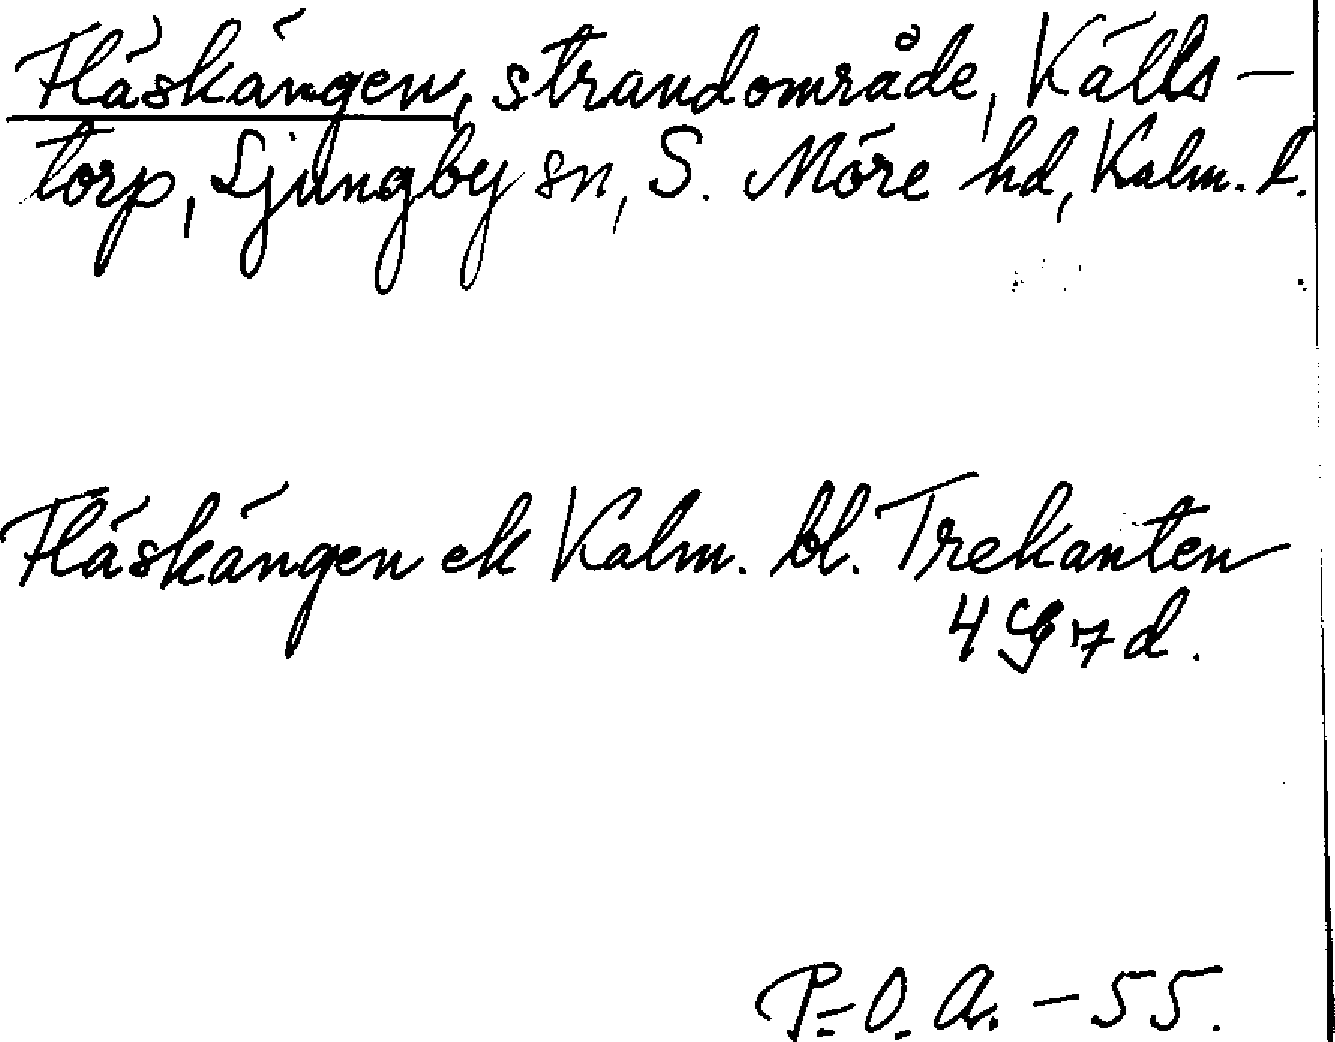 Fläskängen, strandområde, Källs-
torp, Ljungby sn, S. Möre hd, Kalm. l.
Fläskängen ek Kalm. bl. Trekanten
4 G 7 d.
P.-O. A. - 55.